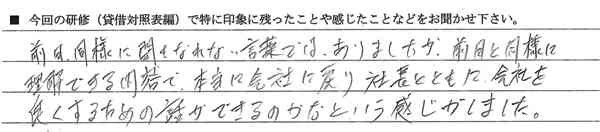 ■ 今回の研修（貸借対照表編）で特に印象に残ったことや感じたことなどをお聞かせ下さい。
前回同様に聞きなれない言葉ではありましたが、前回と同様に
理解できる内容で、本当に会社に戻り社長とともに会社を
良くするための話ができるのかなという感じがしました。